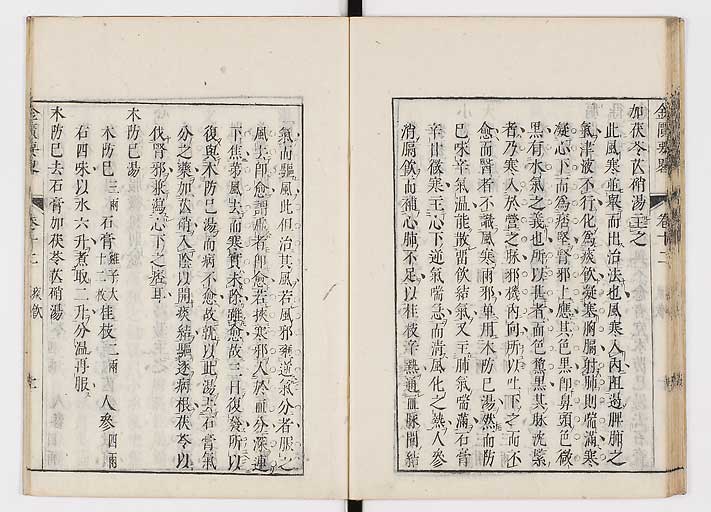 加茯苓芒硝湯主之
此風寒並舉而出治法也風寒入內阻遏脾肺之
氣津液不行化為痰飲凝寒胸膈射肺則喘滿寒
凝心下而為痞堅腎邪上應其色黑即鼻頭色微
黑有水氣之義也所以其者面色黧黑其脉沈緊
者乃寒入於營之脉邪機內向所以吐下之而不
愈而醫者不識風寒兩邪単用木防巳湯然而防
巳味辛氣温能散畱飲結氣又主肺氣喘滿石膏
辛甘微寒主心下逆氣喘急而清風化之熱人參
消膈飲而補心肺不足以桂枝辛熱通血脉開結
金匱要畧
卷十二
痰飲
氣而驅風此但治其風若風邪壅逆氣分者服之
風去即愈謂虛者即愈若挾寒邪入於血分深連
下焦苐風去而寒實未除雖愈故三日復發所以
復與木防巳湯而病不愈故就以此湯去石膏氣
分之藥加芒硝入陰以開痰結驅逐病根茯苓以
伐腎邪兼瀉心下之痞耳
木防巳湯
木防巳三兩 石膏雞子大十二枚 桂枝二兩 人參四兩
右四味以水六升煮取二升分温再服
木防巳去石膏加茯苓芒硝湯
金匱要畧
卷十二
痰飲